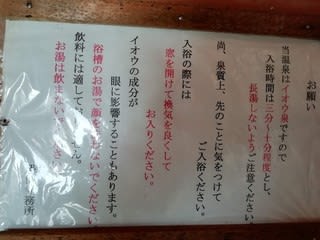 お願い
当温泉はイオウ泉ですので
入浴時間は三分～十分程度とし、
長湯しないようご注意ください。
尚、泉質上、先のことに気をつけて
ご入浴ください。
入浴の際には
窓を開けて換気を良くして
お入りください。
イオウの成分が
眼に影響することもあります。
浴槽のお湯で顔を洗わないでください
飲料には適しておりません。
お湯は飲まないで
務所